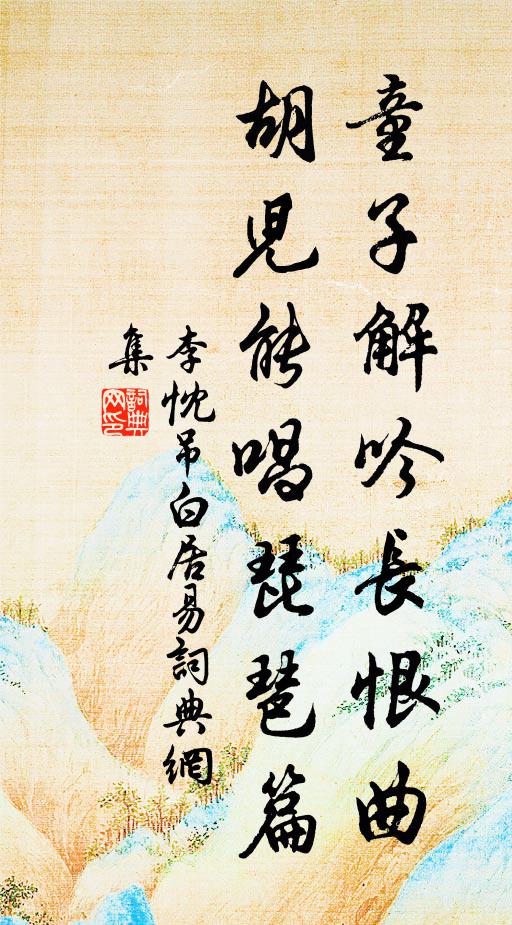 童子解吟長恨曲
胡兒能唱琵琶篇
李忱吊白居易詞典網
集
詞典网印